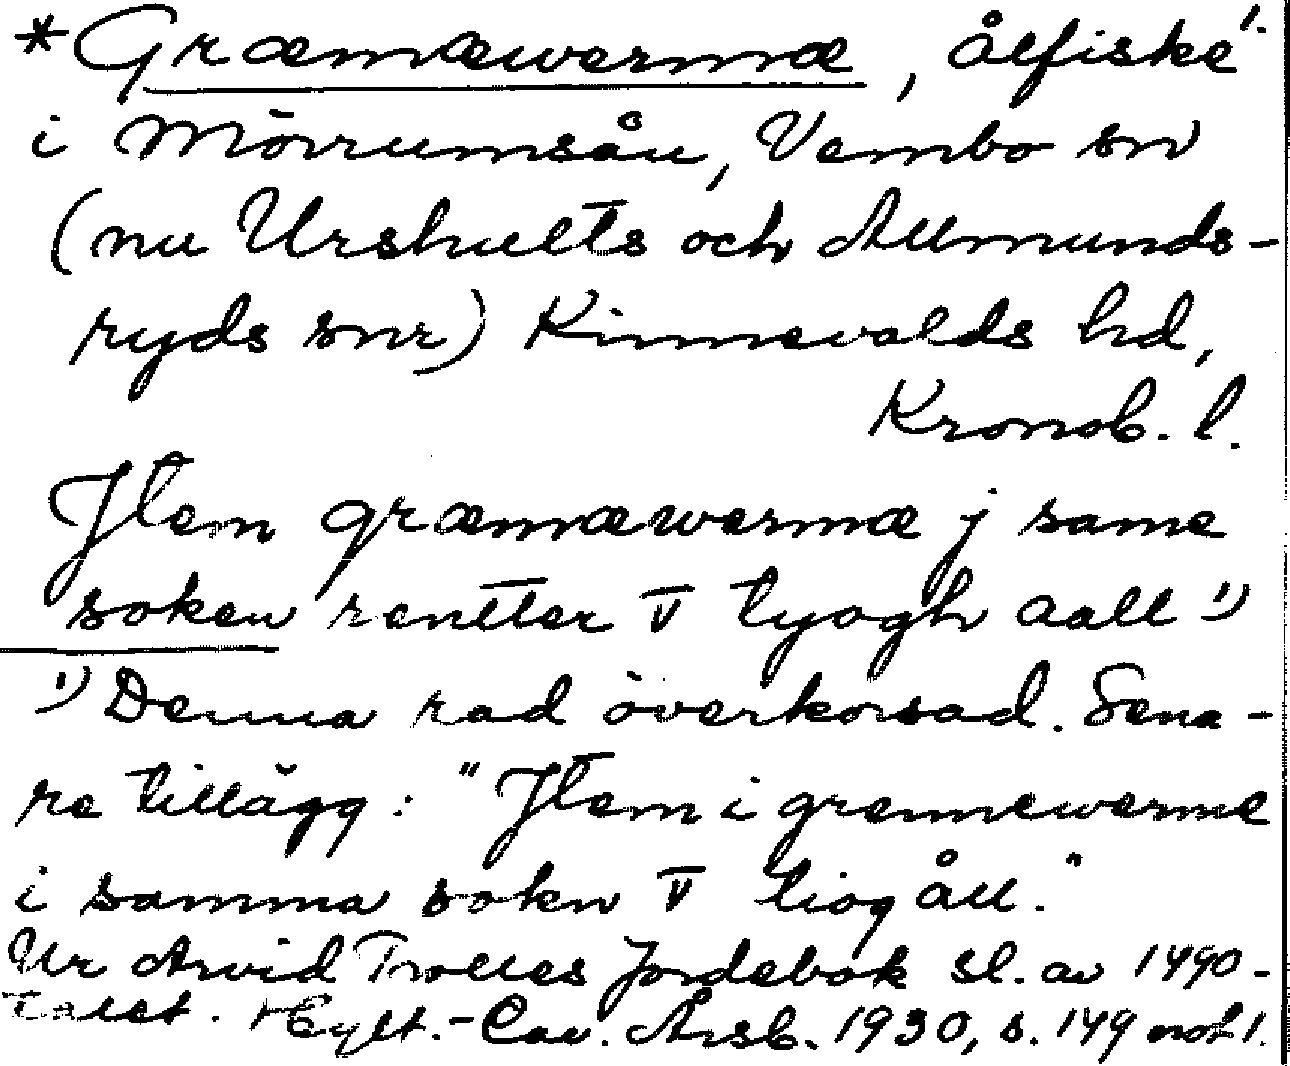 *Græmæwermæ, ålfiske
i Mörrumsån, Vembo sn
(nu Urshults och Almunds-
ryds snr) Kinnevalds hd,
Kronob. l.
Jtem græmæwermæ j same
soken rentter V tyogh aall 1)
1) Denna rad överkorsad. Sena-
re tillägg: "Jtem i gremewerme
i samma sokn V tiog åll."
Ur Arvid Trolles Jordebok sl. av 1490-
talet. Hylt.-Cav. Årsb. 1930, s. 149 not 1.